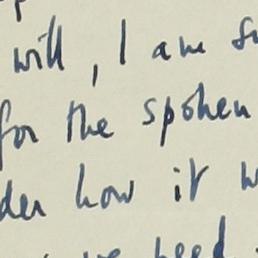 will, I am
for the spoken
how it
need